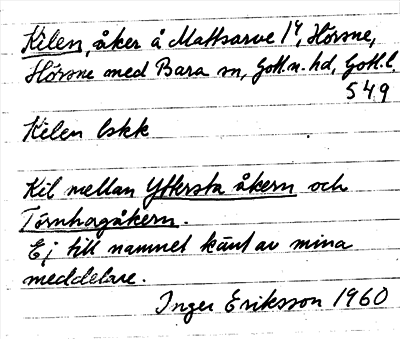 Kilen, åker å Mattsarve 1⁴, Hörsne,
Hörsne med Bara sn, Gotl.n. hd, Gotl.l.
S 49
Kilen lskk
Kil mellan Yttersta åkern och
Törnhagåkern.
Ej till namnet känt av mina
meddelare.
Inger Eriksson 1960